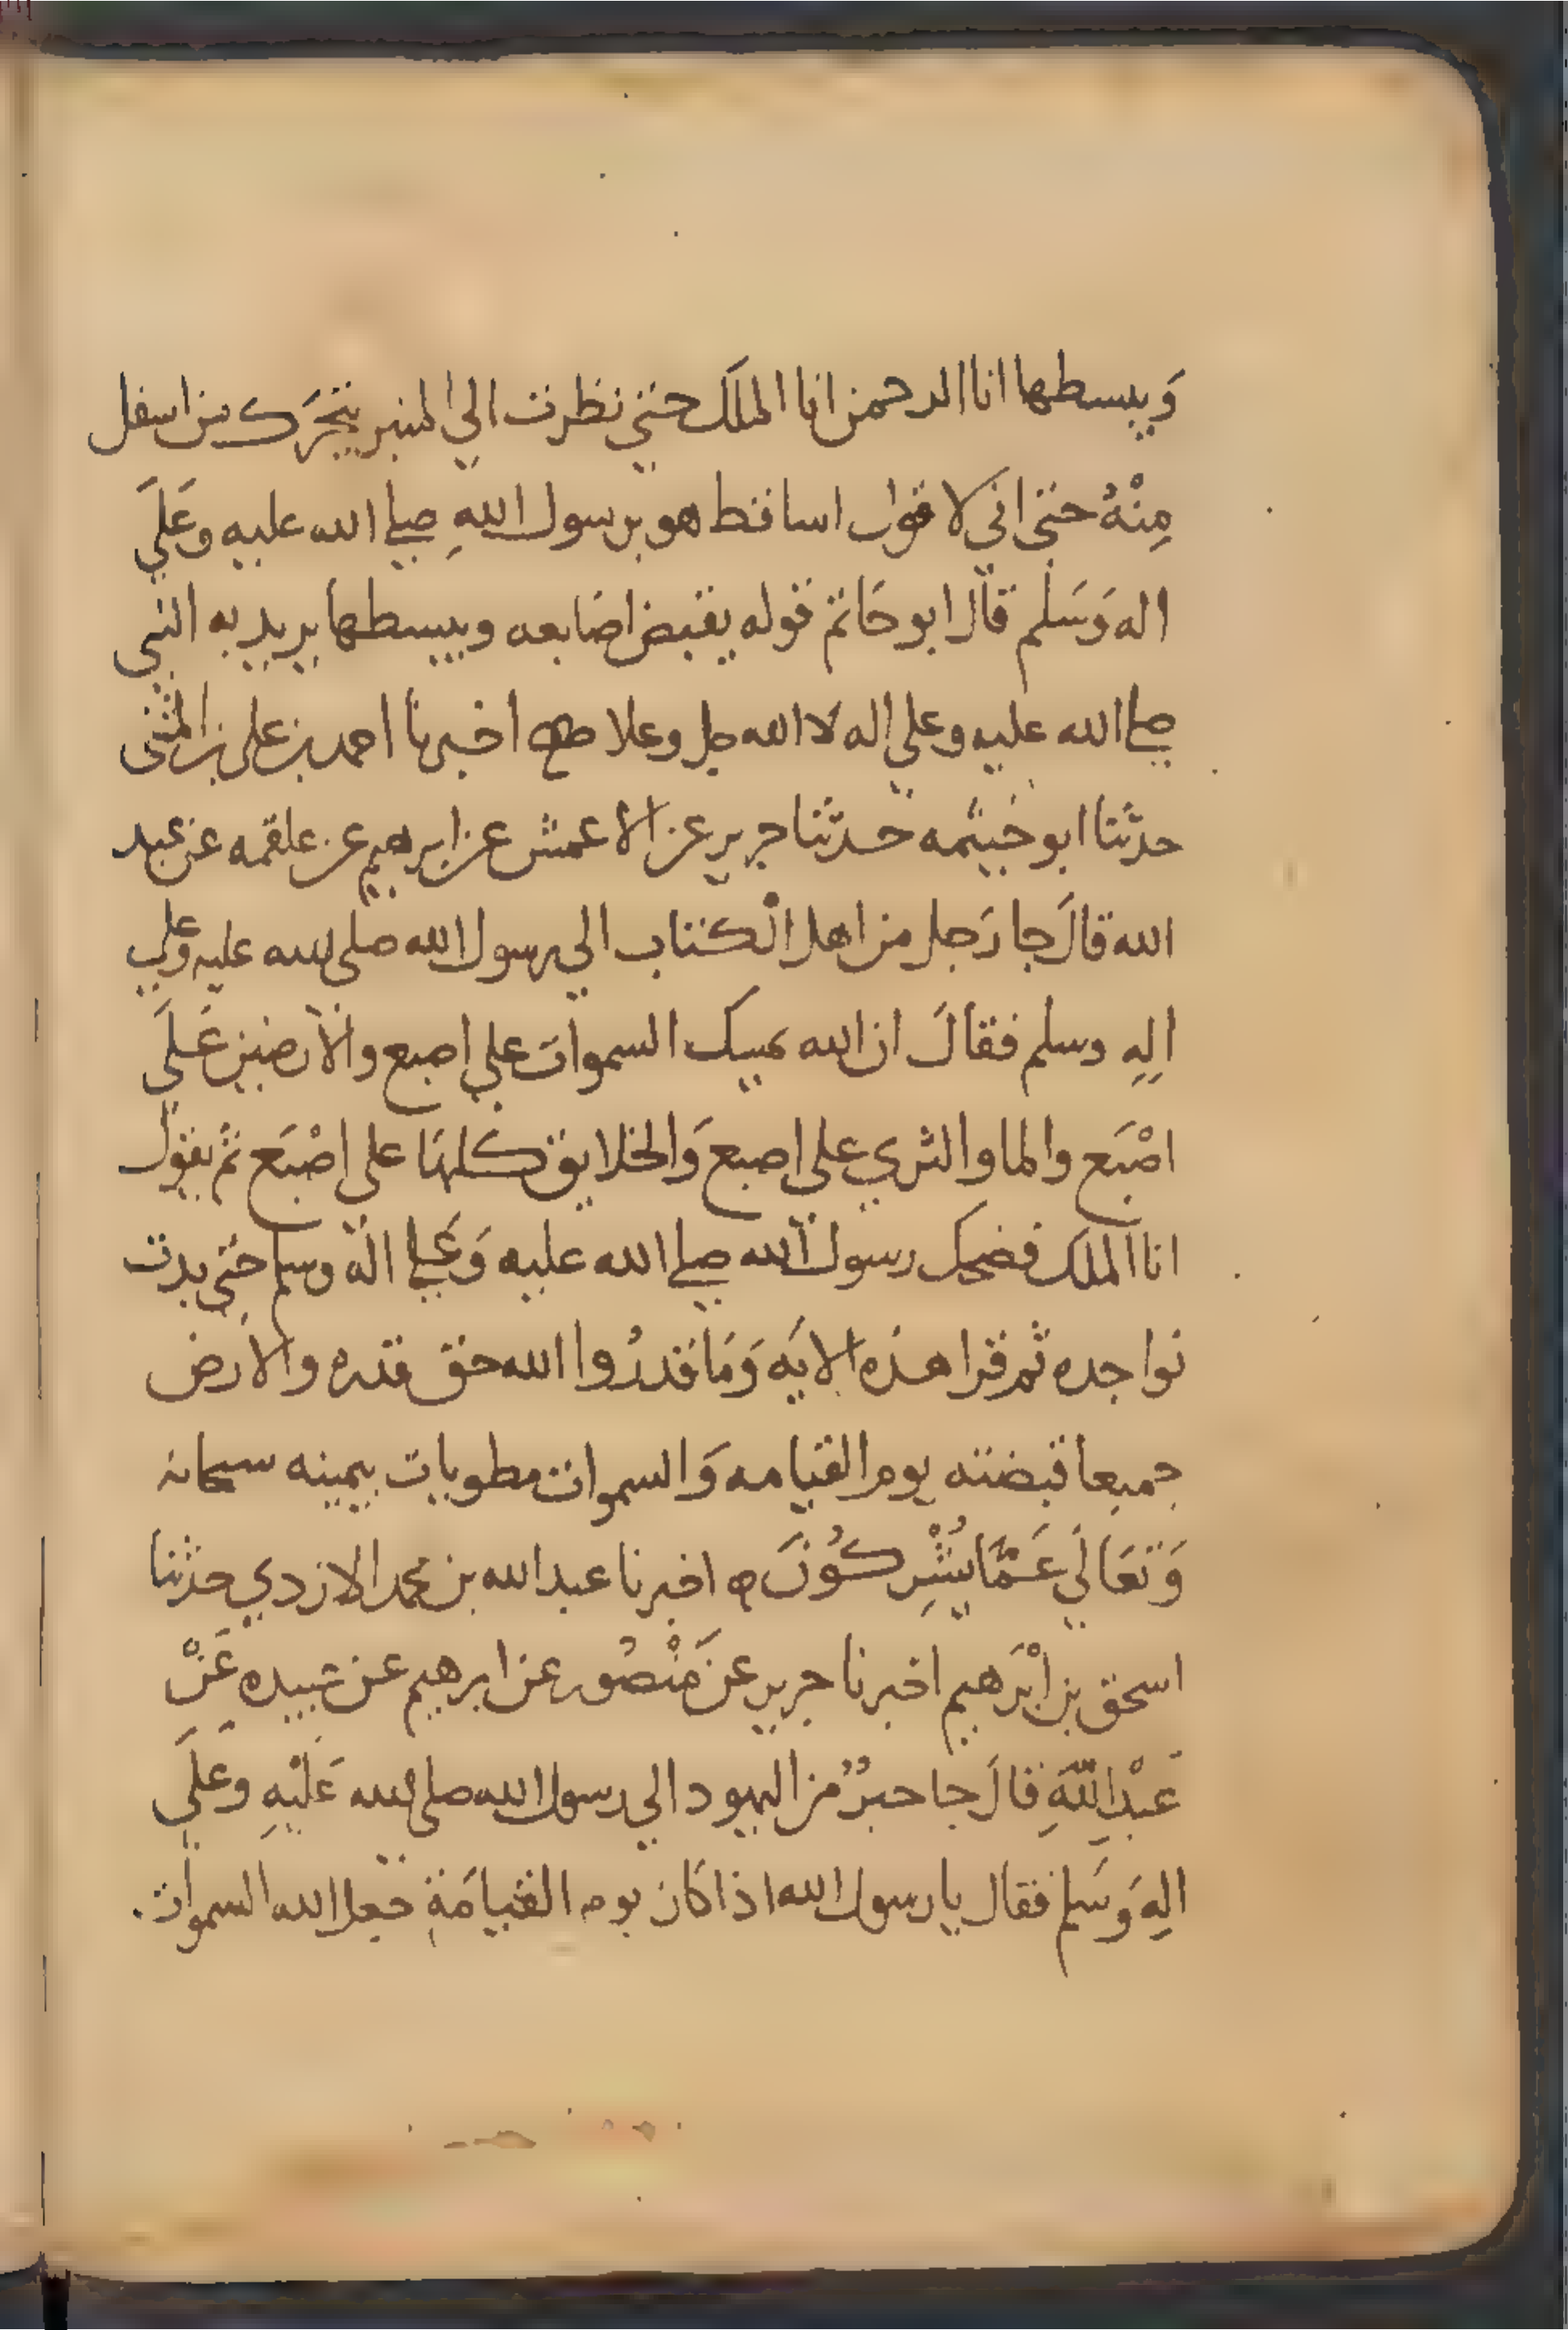 وَيبسطها انا الرحمن انا الملك حتي نظرت الي المنبر يتحَرَك من اسفل
مِنْهُ حتي اني لاقول اساقط هو برسول اللهِ صلي الله عليه وعَلَي
اله وَسَلم قالَ ابو حَاتم قوله يقبض اصَابعه ويبسطها يريد به النبي
صلي الله عليه وعلي اله لا الله جل وعلا صح اخبرنا احمد بن علي بن المثنى
حدثنا ابو خيثمه حدثنا جرير عن الاعمش عن ابرهيم عن علقمه عن عبد
الله قالَ جا رَجل من اهل الكتاب الي رسول الله صلى الله عليه وعلي
الِهِ وسلم فقالَ ان الله يمسك السمواتَ علي اصبع والارضين عَلَي
اصْبَع والما والثري علي اصبع وَالخلايق كلهَا علي اصْبَع ثمَ يقول
انا الملك فضحك رسول الله صلي الله عليه وَعَلي اله وسلم حتي بدت
نواجده ثم قرا هذه الايَه وَمَا قدرُوا الله حق قدره والارض
جميعا قبضته يوم القيامه وَالسموات مطويات بيمينه سبحانه
وَتعَالَي عَمَّا يُشْرِكُوْنَ ه اخبرنا عبد الله بن محمد الازدي حدثنا
اسحق بن ابْرَهيم اخبرنا جرير عن مَنْصُور عن ابرهيم عن عبيده عَنْ
عَبْدِ اللَّهِ قالَ جا حبرٌ من اليهود الي رسول الله صلى الله عَلَيْهِ وعَلَي
الِهِ وَسَلم فقال يا رسول الله اذا كان يوم القيامَةِ جعل الله السموات